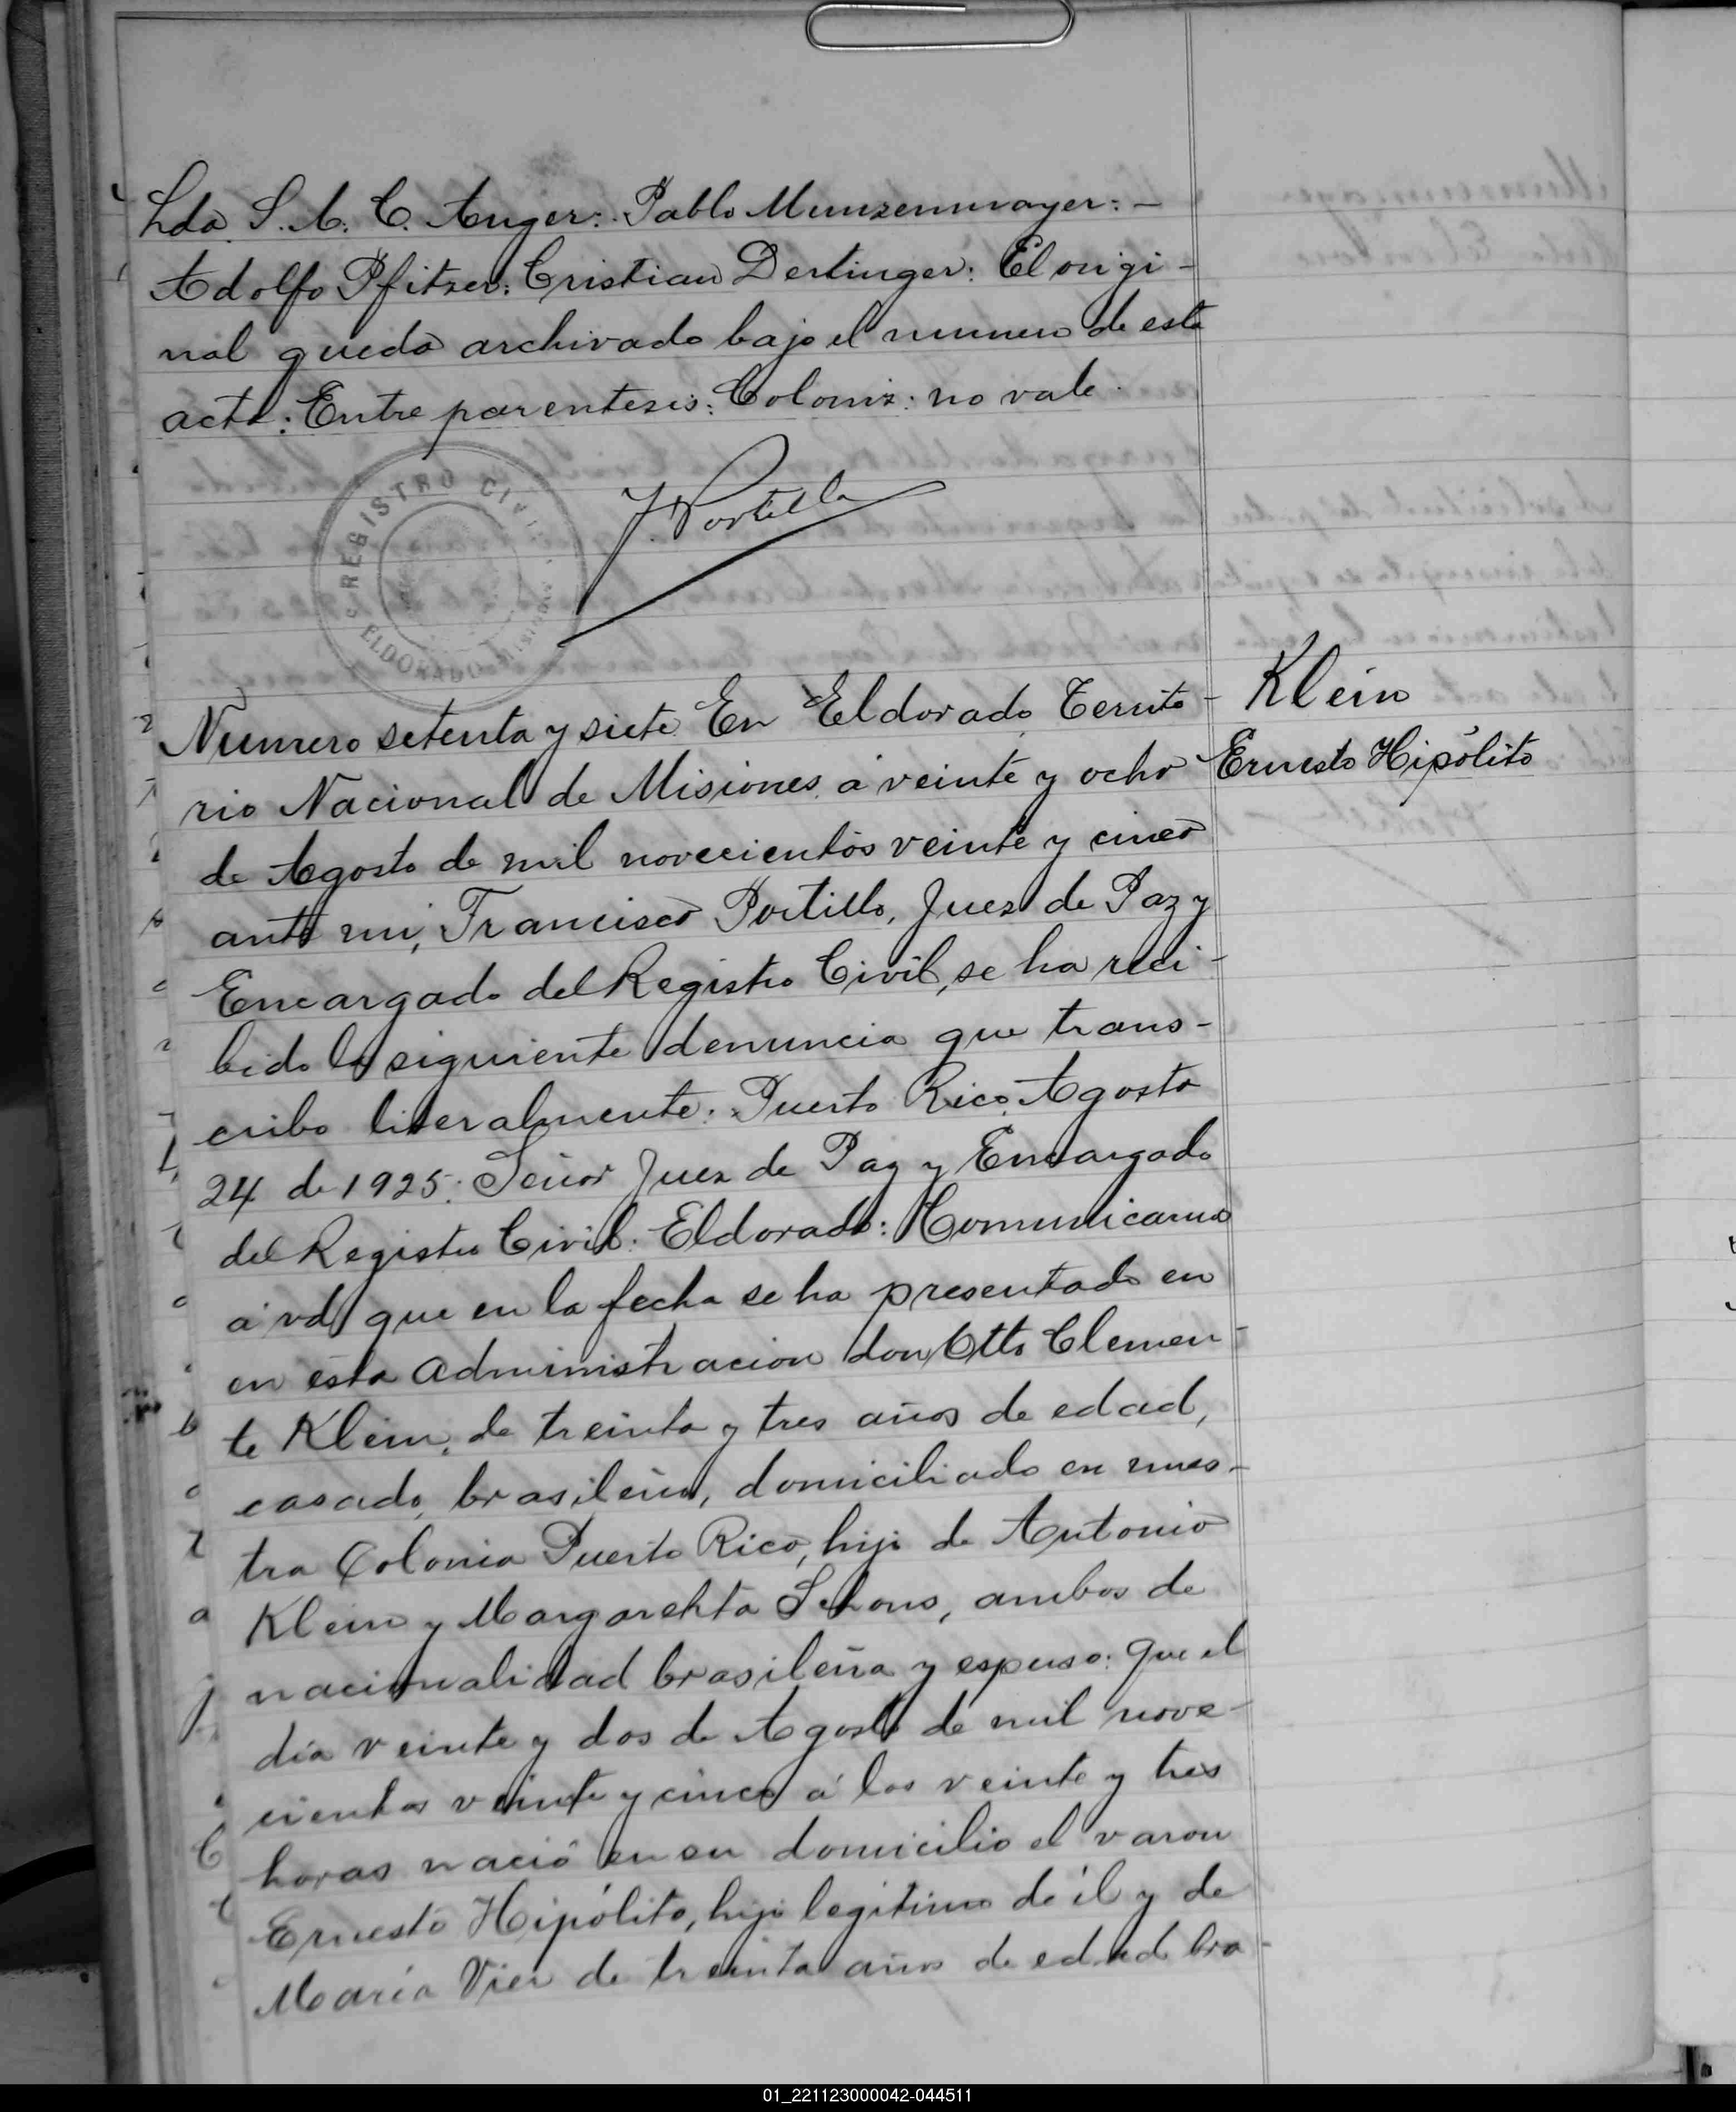 Lda. S. A. C. Auger: Pablo Munzenmayer: -
Adolfo Pfitzer: Cristian Derlinger: El origi-
nal queda archivado bajo el numero de esta
acta: Entre parentesis: Coloniz: no vale.
REGISTRO CIVIL
ELDORADO Misiones
F. Portillo
Klein
Ernesto Hipólito
Numero setenta y siete En Eldorado Territo-
rio Nacional de Misiones á veinte y ocho
de Agosto de mil novecientos veinte y cinco
ante mi, Francisco Portillo, Juez de Paz y
Encargado del Registro Civil, se ha reci-
bido la siguiente denuncia que trans-
cribo literalmente: Puerto Rico, Agosto
24 de 1925: Señor Juez de Paz y Encargado
del Registro Civil: Eldorado: Comunicamos
á vd que en la fecha se ha presentado en
en esta administracion don Otto Clemen-
te Klein, de treinta y tres años de edad,
casado, brasileño, domiciliado en nues-
tra Colonia Puerto Rico, hijo de Antonio
Klein y Margarehta Schons, ambos de
nacionalidad brasileña y expuso: que el
día veinte y dos de Agosto de mil nove-
cientos veinte y cinco á las veinte y tres
horas nació en su domicilio el varon
Ernesto Hipólito, hijo legitimo de él y de
María Vier de treinta años de edad bra-
01_221123000042-044511